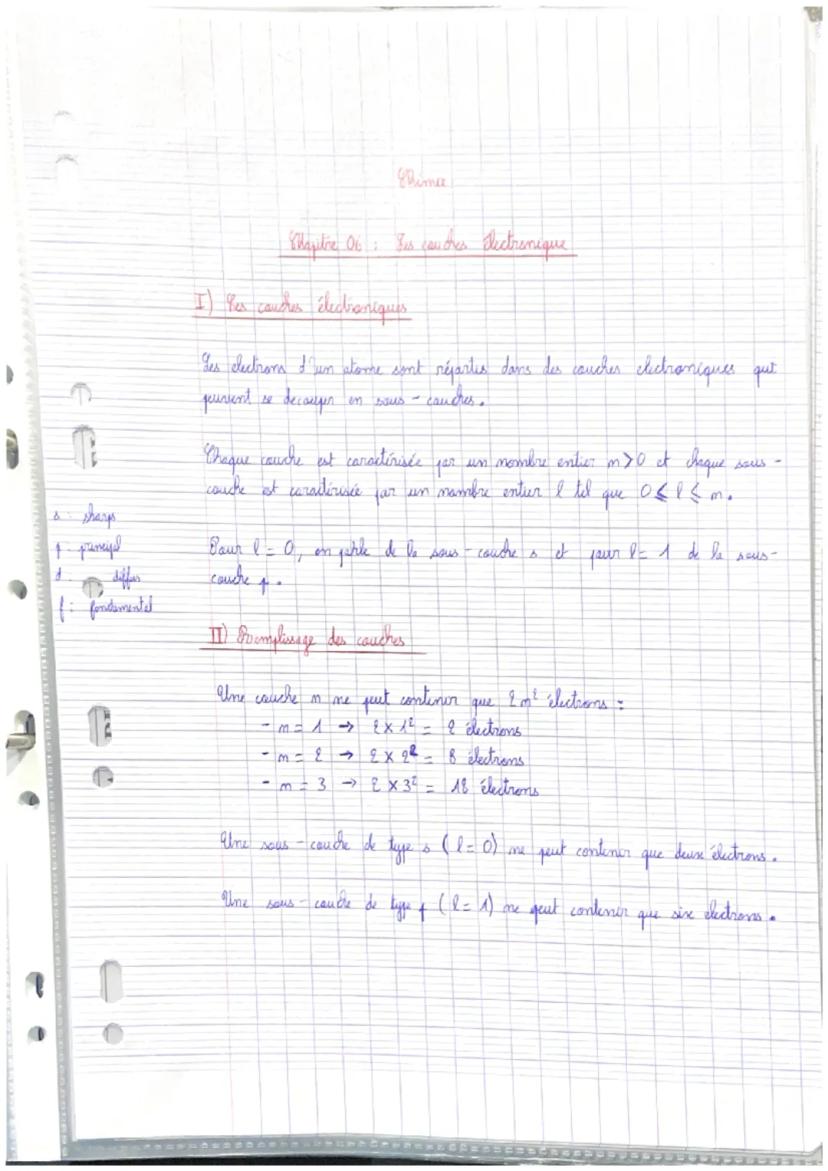 Chimie
Chapitre 06 : Les couches électronique
I) Les couches électroniques
Les électrons d'un atome sont répartis dans des couches électroniques qui
peuvent se decouper en sous-couches.
Chaque couche est caractérisée par un nombre entier n>0 et chaque sous-
couche est caractérisée par un nombre entier l tel que 0 ⩽ l ⩽ n.
s : sharp
p : principal
d : diffus
f : fondamental
Pour l = 0, on parle de la sous-couche s et pour l = 1 de la sous-
couche p.
II) Remplissage des couches
Une couche n ne peut contenir que 2n² électrons :
- n = 1 → 2 x 1² = 2 électrons
- n = 2 → 2 x 2² = 8 électrons
- n = 3 → 2 x 3² = 18 électrons
Une sous-couche de type s (l = 0) ne peut contenir que deux électrons.
Une sous-couche de type p (l = 1) ne peut contenir que six électrons.